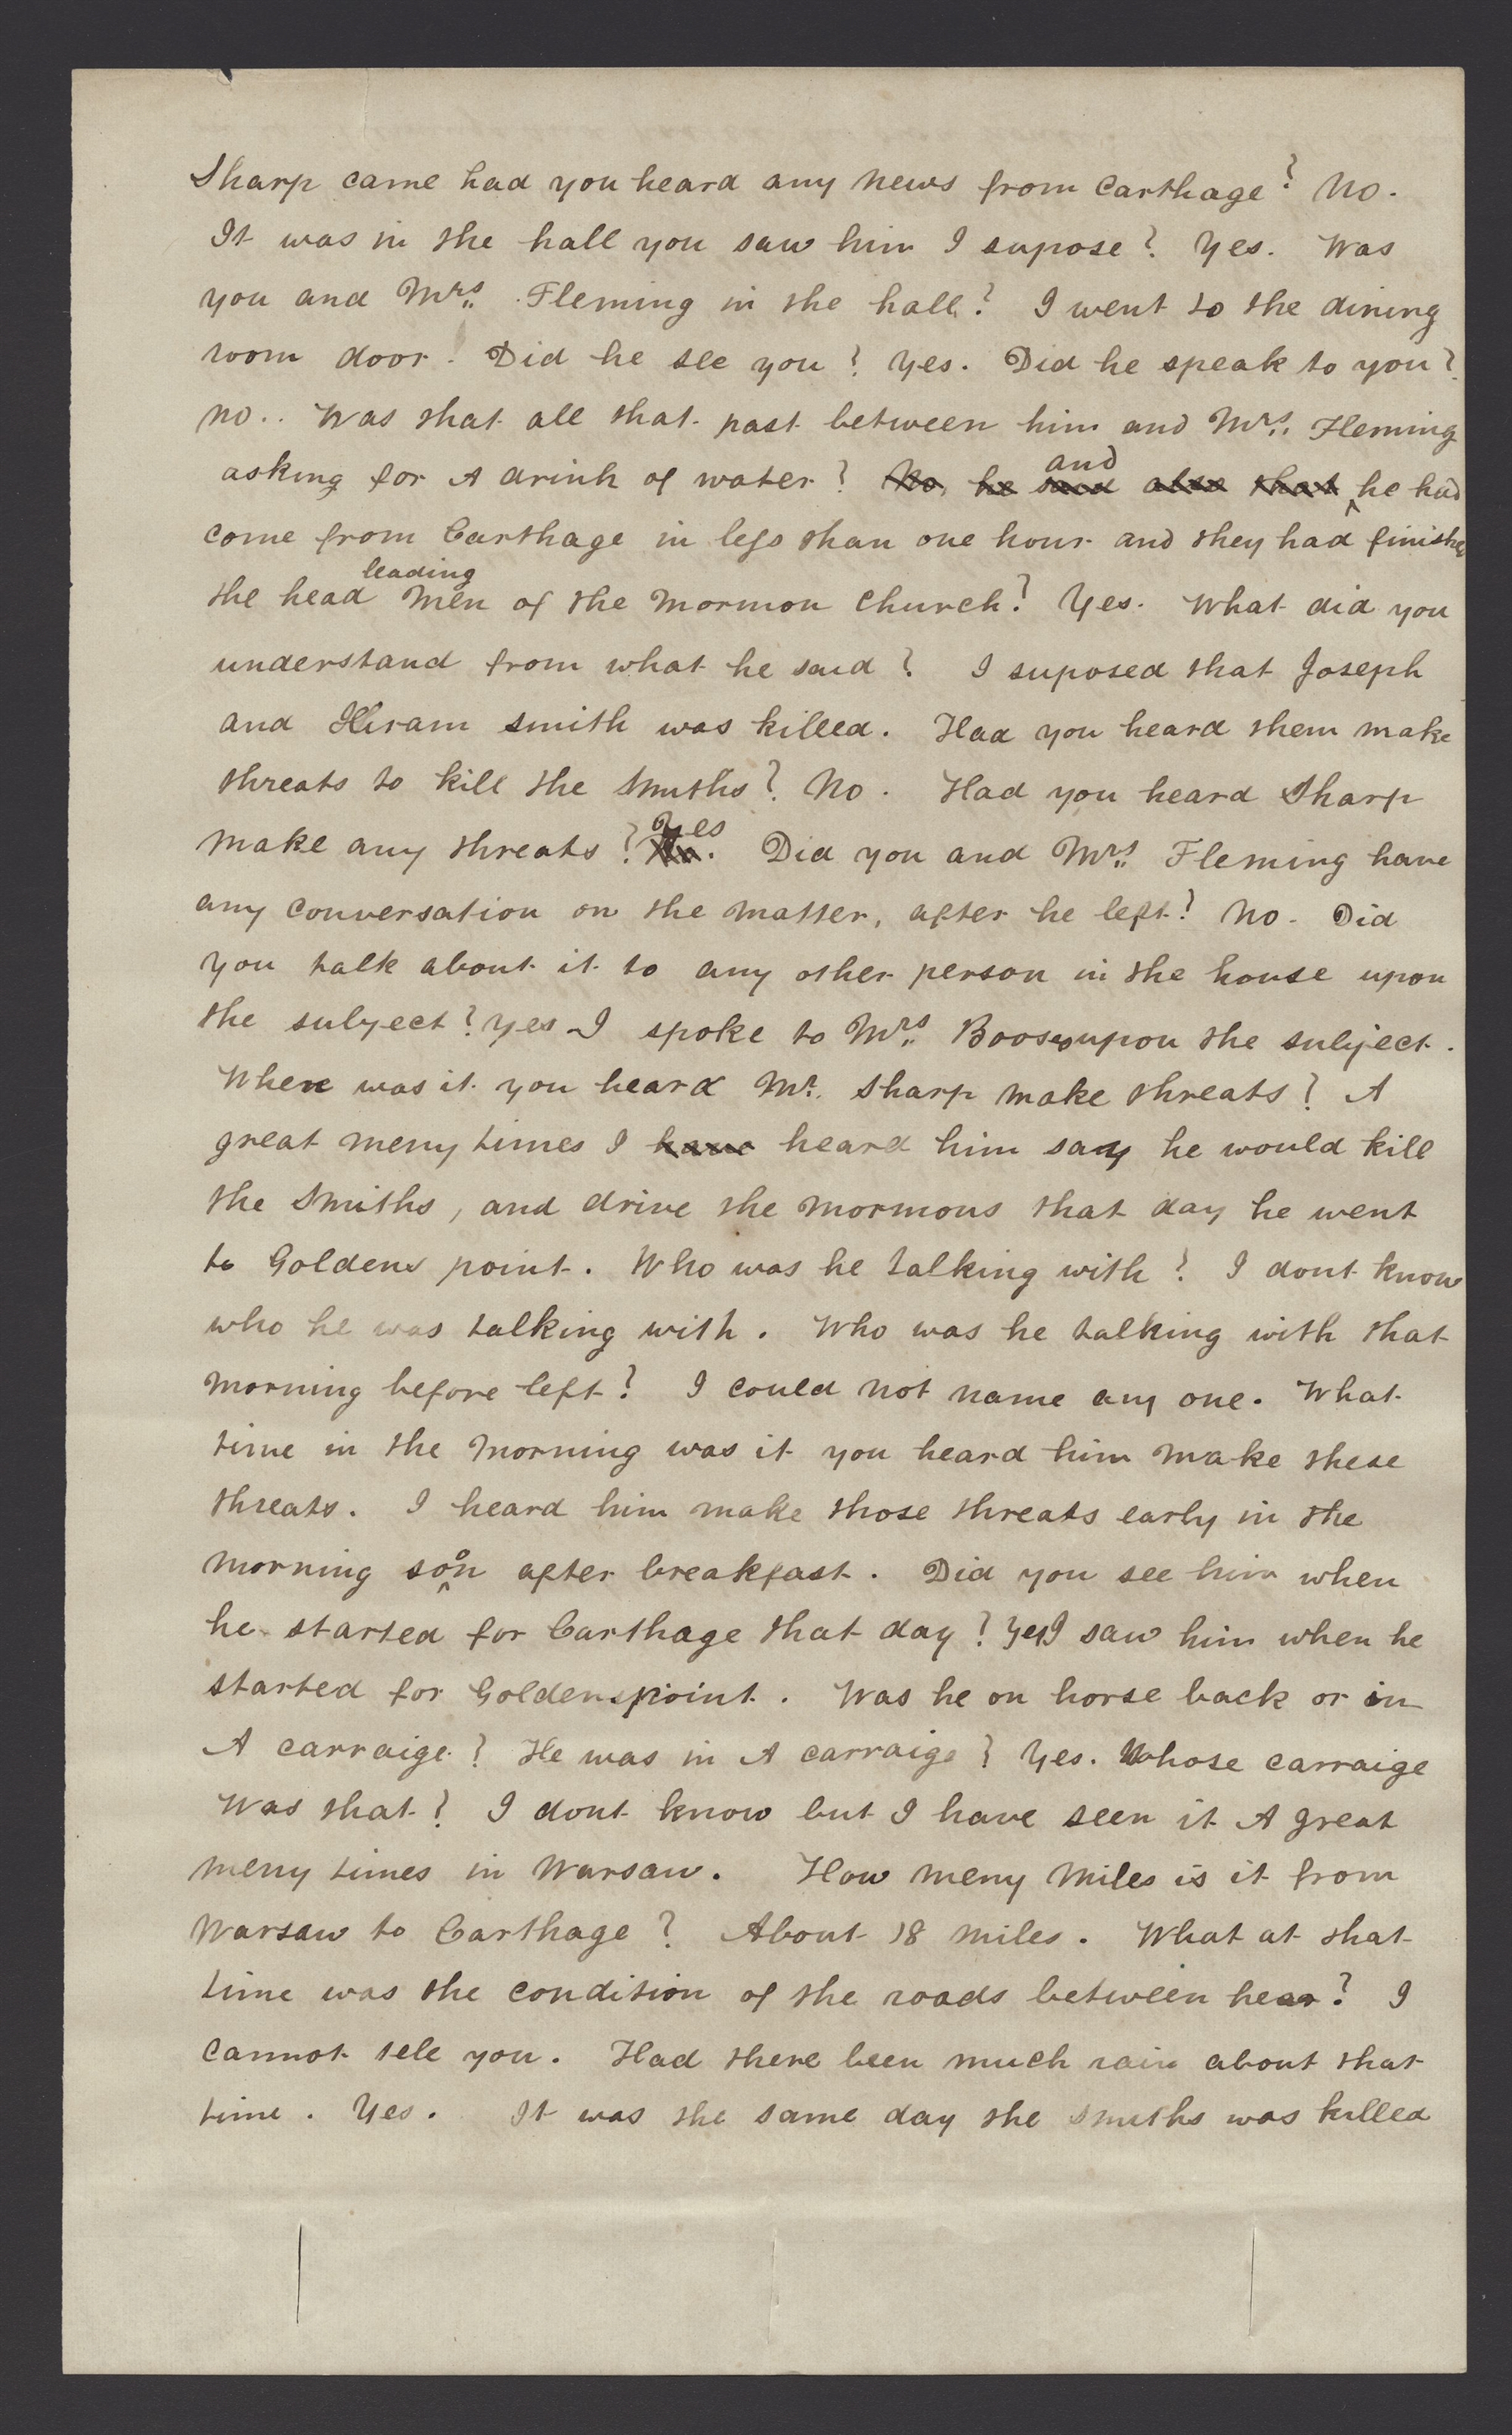 Sharp came had you heard any news from Carthage? No.
It was in the hall you saw him I supose? Yes. Was
you and Mrs. Fleming in the hall? I went to the dining
room door. Did he see you? Yes. Did he speak to you?
no.. Was that all that past between him and Mrs. Fleming
asking for A drink of water? No, he said also that and he had
come from Carthage in less than one hour and they had finished
the head leading men of the Mormon Church? Yes. What did you
understand from what he said? I suposed that Joseph
and Hiram Smith was killed. Had you heard them make
threats to kill the Smiths? No. Had you heard Sharp
make any threats? No. Yes Did you and Mrs. Fleming have
any conversation on the matter, after he left? No. Did
you talk about it to any other person in the house upon
the subject? Yes I spoke to Mrs. upon the subject.
Where was it you heard Mr. Sharp make threats? A
great meny times I have heard him say he would kill
the Smiths, and drive the Mormons that day he went
to Goldens point. Who was he talking with? I dont know
who he was talking with. Who was he talking with that
morning before left? I could not name any one. What
time in the morning was it you heard him make these
threats. I heard him make those threats early in the
morning soon after breakfast. Did you see him when
he started for Carthage that day? Yes I saw him when he
started for Goldens point. Was he on horse back or in
A carraige? He was in A carraige? Yes. Whose carraige
was that? I dont know but I have seen it A great
meny times in Warsaw. How meny miles is it from
Warsaw to Carthage? About 18 miles. What at that
time was the condition of the roads between hear? I
cannot tell you. Had there been much rain about that
time. Yes. It was the same day the Smiths was killed